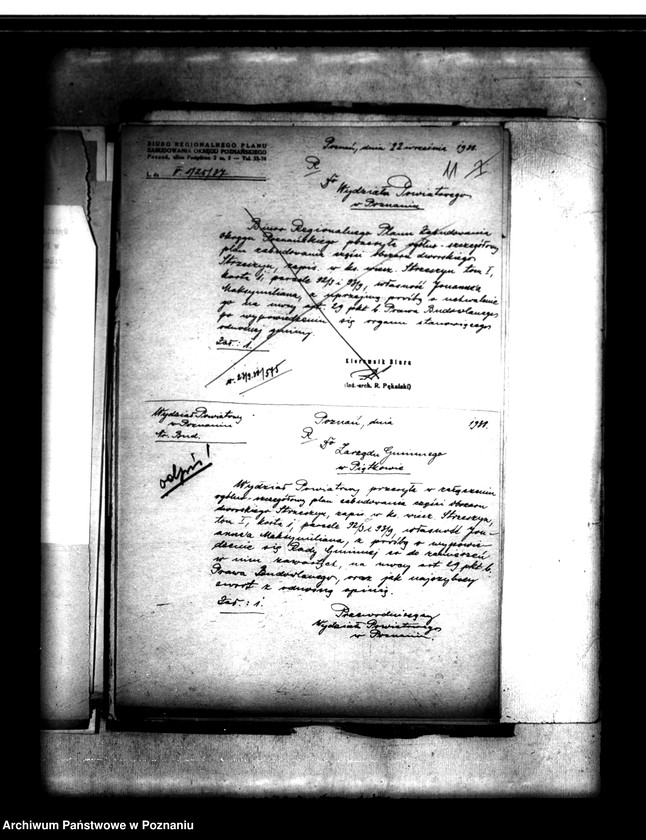 BIURO REGIONALNEGO PLANU
ZABUDOWANIA OKRĘGU POZNAŃSKIEGO
Poznań, dnia 22 września 19
L. dz. F 1/25/37
R
Do
Wydziału Powiatowego
w Poznaniu
Biuro Regionalnego Planu Zabudowania
Okręgu Poznańskiego przesyła ogólno-szczegółowy
plan zabudowania części obszaru dworskiego
Strzeszyn, zapis. w ks. wiecz. Strzeszyn tom I,
karta 1, parcele 92/3 i 93/9, własność Joanasza
Maksymiliana, z uprzejmą prośbą o uchwalenie
go na mocy art. 29 pkt b. Prawa Budowlanego
po wypowiedzeniu się organu stanowiącego
odnośnej gminy.
Zał.: 1.
Kierownik Biura
(Inż.-arch. R. Pękalski)
Wydział Powiatowy
w Poznaniu
Poznań, dnia 19
R
Do
Zarządu Gminnego
w Piątkowie
odpis!
Wydział Powiatowy przesyła w załączeniu
ogólno-szczegółowy plan zabudowania części obszaru
dworskiego Strzeszyn, zapis. w ks. wiecz. Strzeszyn,
tom I, karta 1, parcele 92/3 i 93/9, własność Joa-
nasza Maksymiliana, z prośbą o wypowie-
dzenie się Rady Gminnej co do zamierzeń
w nim zawartych, na mocy art. 29 pkt b.
Prawa Budowlanego, oraz jak najszybszy
zwrot z odnośną opinią.
Zał.: 1.
Przewodniczący
Wydziału Powiatowego
w Poznaniu.
Archiwum Państwowe w Poznaniu